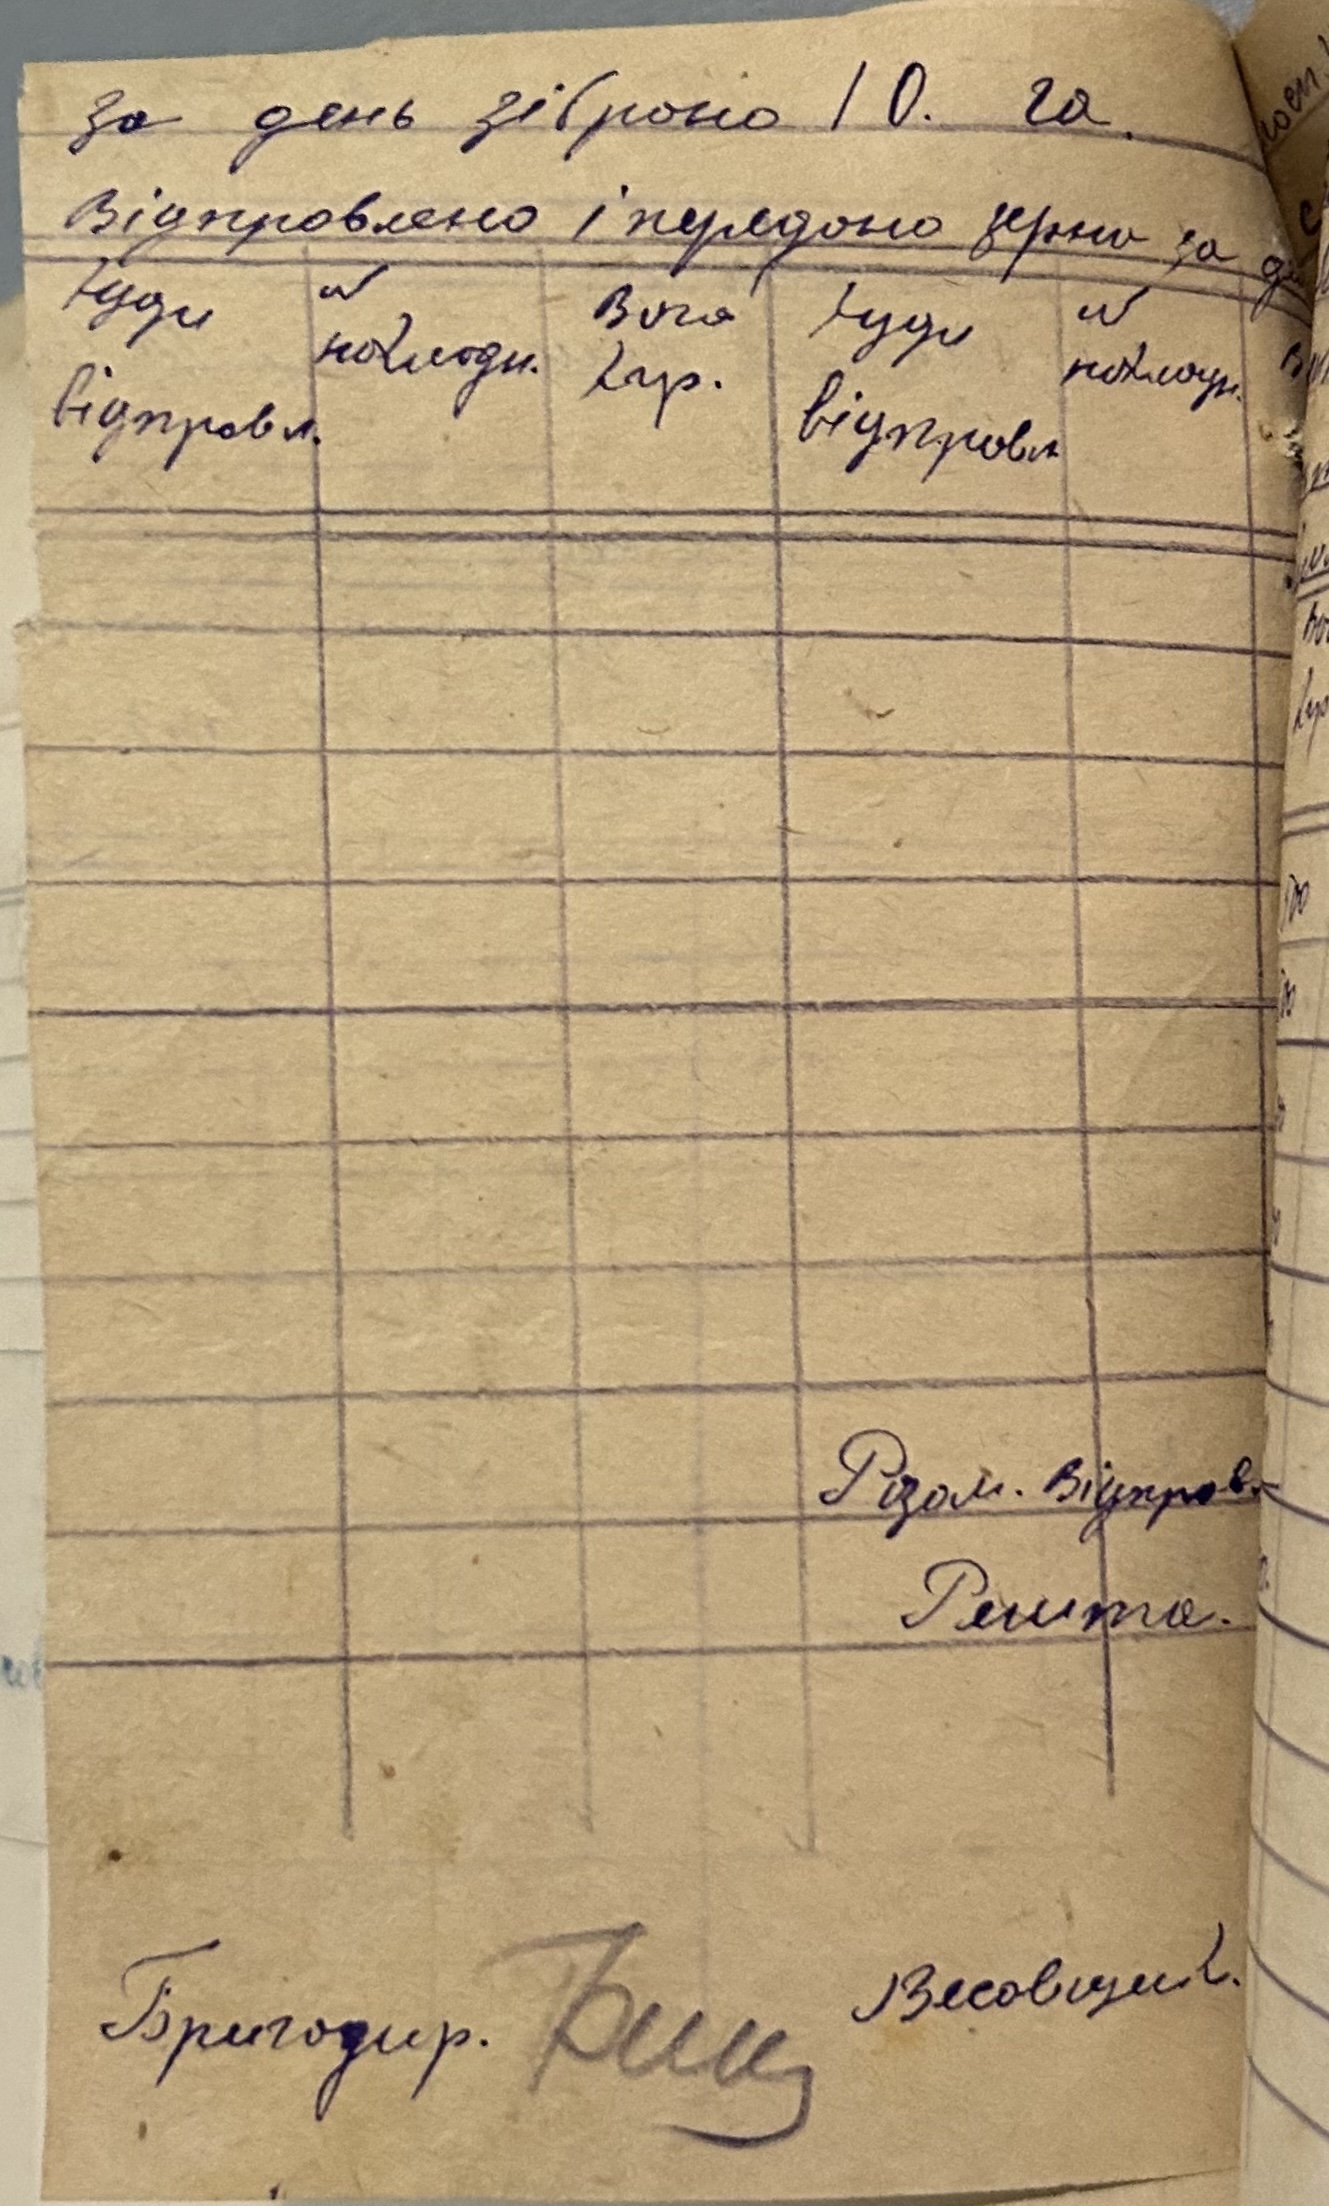 за день зібрано 10. га.
Відправлено і передано зерна за
Куди відправл.
№ накладн.
Вага кгр.
Куди відправл
№ накладн.
Разом. відправ.
Решта.
Бригадир.
Весовщик.